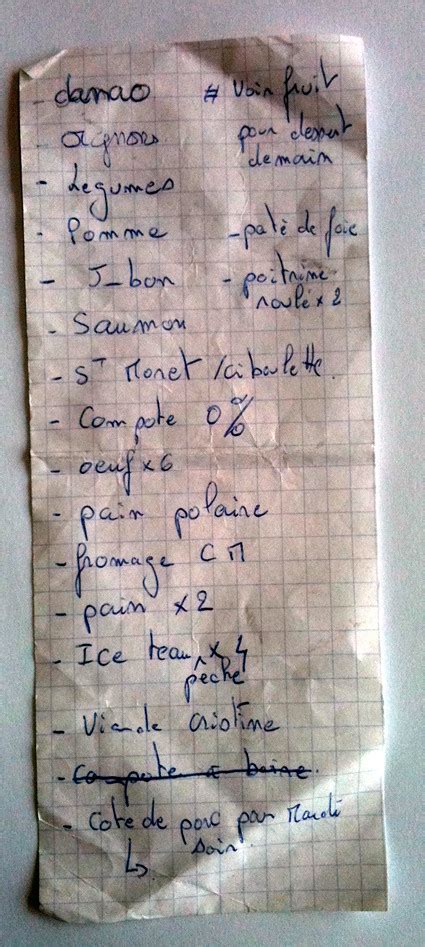 - danao # Voir fruit
pour dessert
demain
- oignons
- Légumes
- Pomme - paté de foie
- J-bon - poitrine
roulé x 2
- Saumon
- ST Moret /ciboulette.
- Compote 0%
- oeuf x 6
- pain polaire
- fromage C M
- pain x 2
- Ice teau x 4
pêche
- Viande Cristine
- Compote a boire.
- Cote de porc pour Mardi
↳ soir.